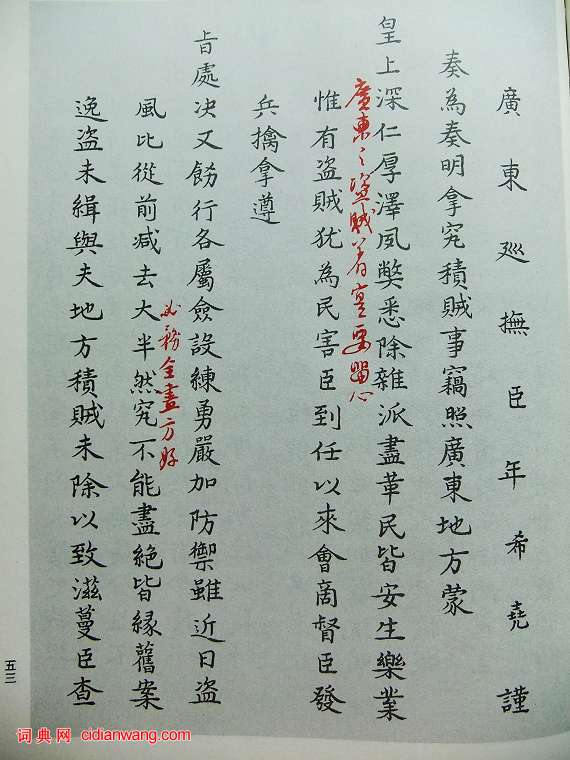 廣東巡撫臣年希堯謹
奏為奏明拿究積賊事竊照廣東地方蒙
皇上深仁厚澤夙弊悉除雜派盡革民皆安生樂業
廣東之盜賊著實要留心
惟有盗賊犹為民害臣到任以來會商督臣發
兵擒拿遵
旨處决又飭行各屬僉設練勇嚴加防禦雖近日盗
必務全盡方好
風比從前减去大半然究不能盡絕皆緣舊案
逸盗未緝與夫地方積賊未除以致滋蔓臣查
五三
词典网 cidianwang.com